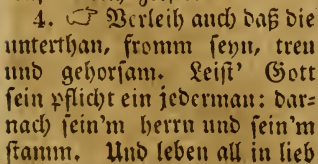 4. ☞ Verleih auch daß die
unterthan, fromm seyn, treu
und gehorsam. Leist' Gott
sein pflicht ein jederman: dar-
nach sein'm herrn und sein'm
stamm. Und leben all in lieb